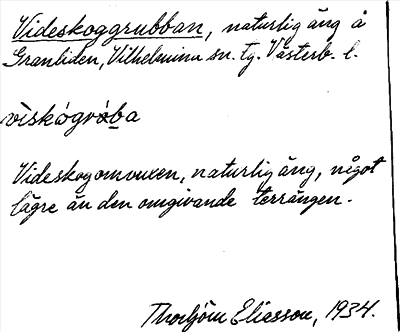 Videskoggrubban, naturlig äng å
Granliden, Vilhelmina sn. Lg. Västerb. l.
vìskógróba
Videskogomvuxen, naturlig äng, något
lägre än den omgivande terrängen.
Thorbjörn Eliasson, 1934.